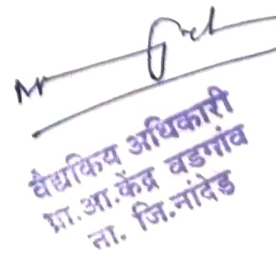 वैद्यकिय अधिकारी
प्रा.आ.केंद्र वडगांव
ता. जि.नांदेड